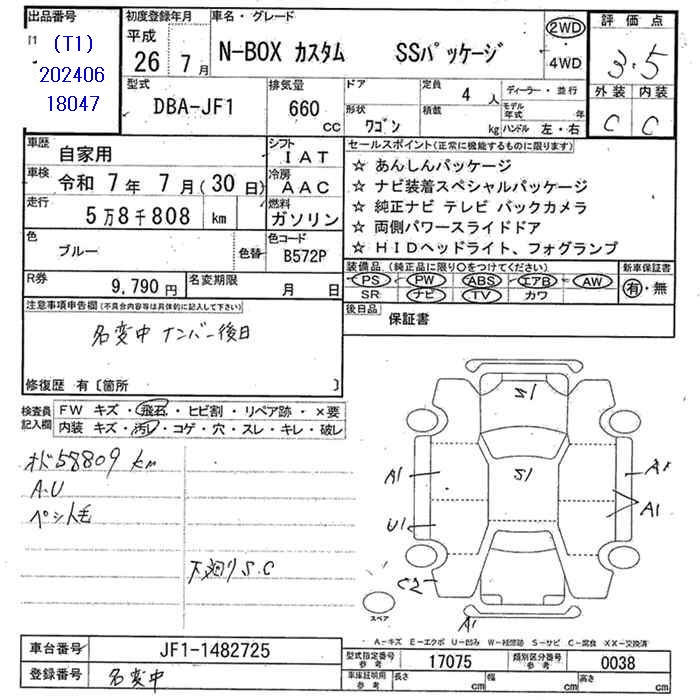 出品番号 初度登録年月 車名・グレード 評価点
(T1) 平成
202406 26年 7月 N-BOX カスタム SSパッケージ 2WD 3.5
18047 ・4WD
型式 排気量 ドア 定員 ディーラー・並行 外装 内装
DBA-JF1 660 CC 4 人 モデル年式 年 C C
形状 ワゴン 積載 kg ハンドル 左・右
車歴 自家用 シフト IAT セールスポイント(正常に機能するものに限ります)
車検 令和 7年 7月(30日) 冷房 AAC ☆ あんしんパッケージ
☆ ナビ装着スペシャルパッケージ
走行 5万8千808 km 燃料 ガソリン ☆ 純正ナビ テレビ バックカメラ
☆ 両側パワースライドドア
色 ブルー 色替 色コード B572P ☆ HIDヘッドライト、フォグランプ
R券 9,790円 名変期限 月 日 装備品(純正品に限り○をつけてください) 新車保証書
PS・PW・ABS・エアB・AW 有・無
SR ナビ・TV・カワ
注意事項申告欄(不具合内容等は具体的に記入して下さい) 後日品 保証書
名変中 ナンバー後日
修復歴 有〔箇所 〕
検査員記入欄 FW キズ・飛石・ヒビ割・リペア跡・×要
内装 キズ・汚レ・コゲ・穴・スレ・キレ・破レ
58809 km
A.U
毛
下廻りS.C
S1
S1
A1
A1
U1
C2
A1
スペア
A-キズ E-エクボ U-凹み W-補修跡 S-サビ C-腐食 XX-交換済
車台番号 JF1-1482725 型式指定番号 参考 17075 類別区分番号 参考 0038
登録番号 名変中 車庫証明用 参考 長さ cm 幅 cm 高さ cm